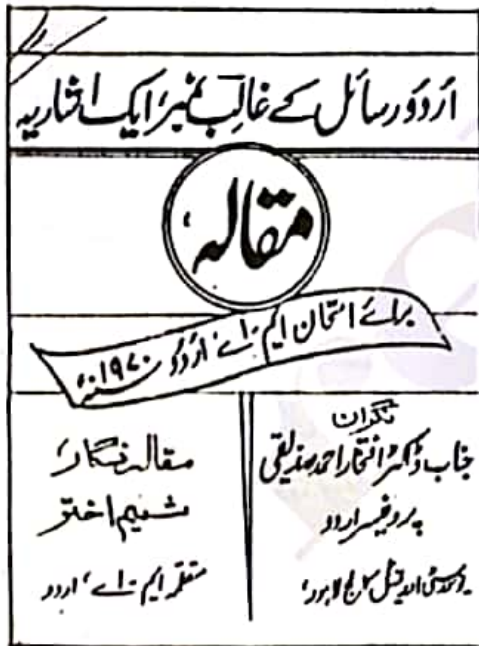 اردو رسائل کے غالب نمبر، ایک اشاریہ
مقالہ
برائے امتحان ایم۔اے، اردو سنہ ۱۹۷۰ء
نگران
جناب ڈاکٹر افتخار احمد صدیقی
پروفیسر اردو
یونیورسٹی اورینٹل کالج لاہور،
مقالہ نگار،
شمیم اختر
متعلم ایم۔اے، اردو